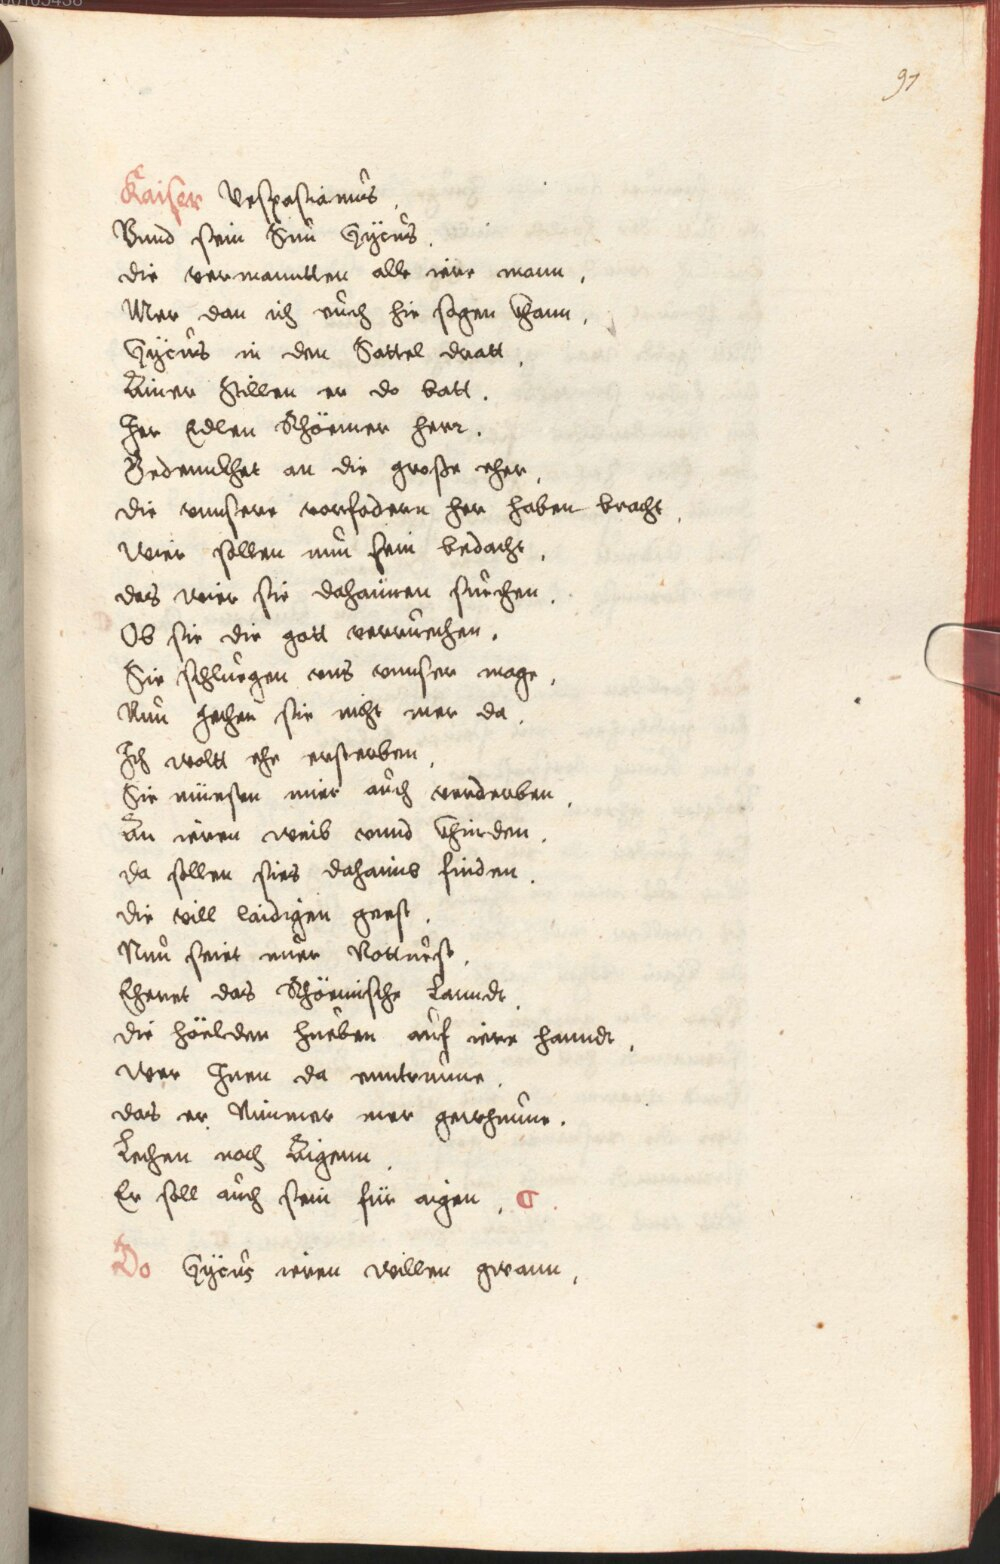 97
Kaiser Vespasianus,
Vnnd sein Sun Tÿtus,
die vermanntten alle iere mann,
Mer dan ich euch hie sagen khann,
Tÿtus in den Sattel dratt,
Ainer Stillen er do batt.
Her Edlen Rhöemer herr.
Gedennkhet an die große eher,
die vnnsere vorfodern her haben bracht,
wier sollen nun sein bedacht,
das wier sie dahaimen suechen,
Ob sie die gott verruechen.
Sie schluegen vns vnnser mage,
Nun gechen sie nicht mer da,
Ich wolt ehe ersterben,
Sie müesen mier auch verderben,
An ieren weib vnnd khinden,
da sollen sies dahaimb finden,
die vill laidigen gest,
Nun seiet euer Notturst,
Eheret das Rhöemische Lanndt,
die höelden hueben auf iere hanndt,
wer Inen da enntrunne,
das er Nimmer mer gewhunne.
Lechen noch Aigenn,
Er soll auch sein für aigen,
Do Tÿtus ieren willen gwann,